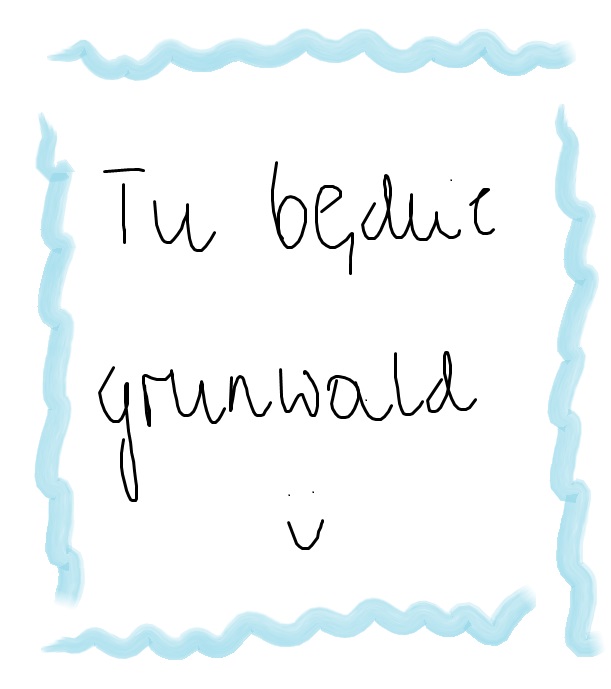 Tu będzie
grunwald